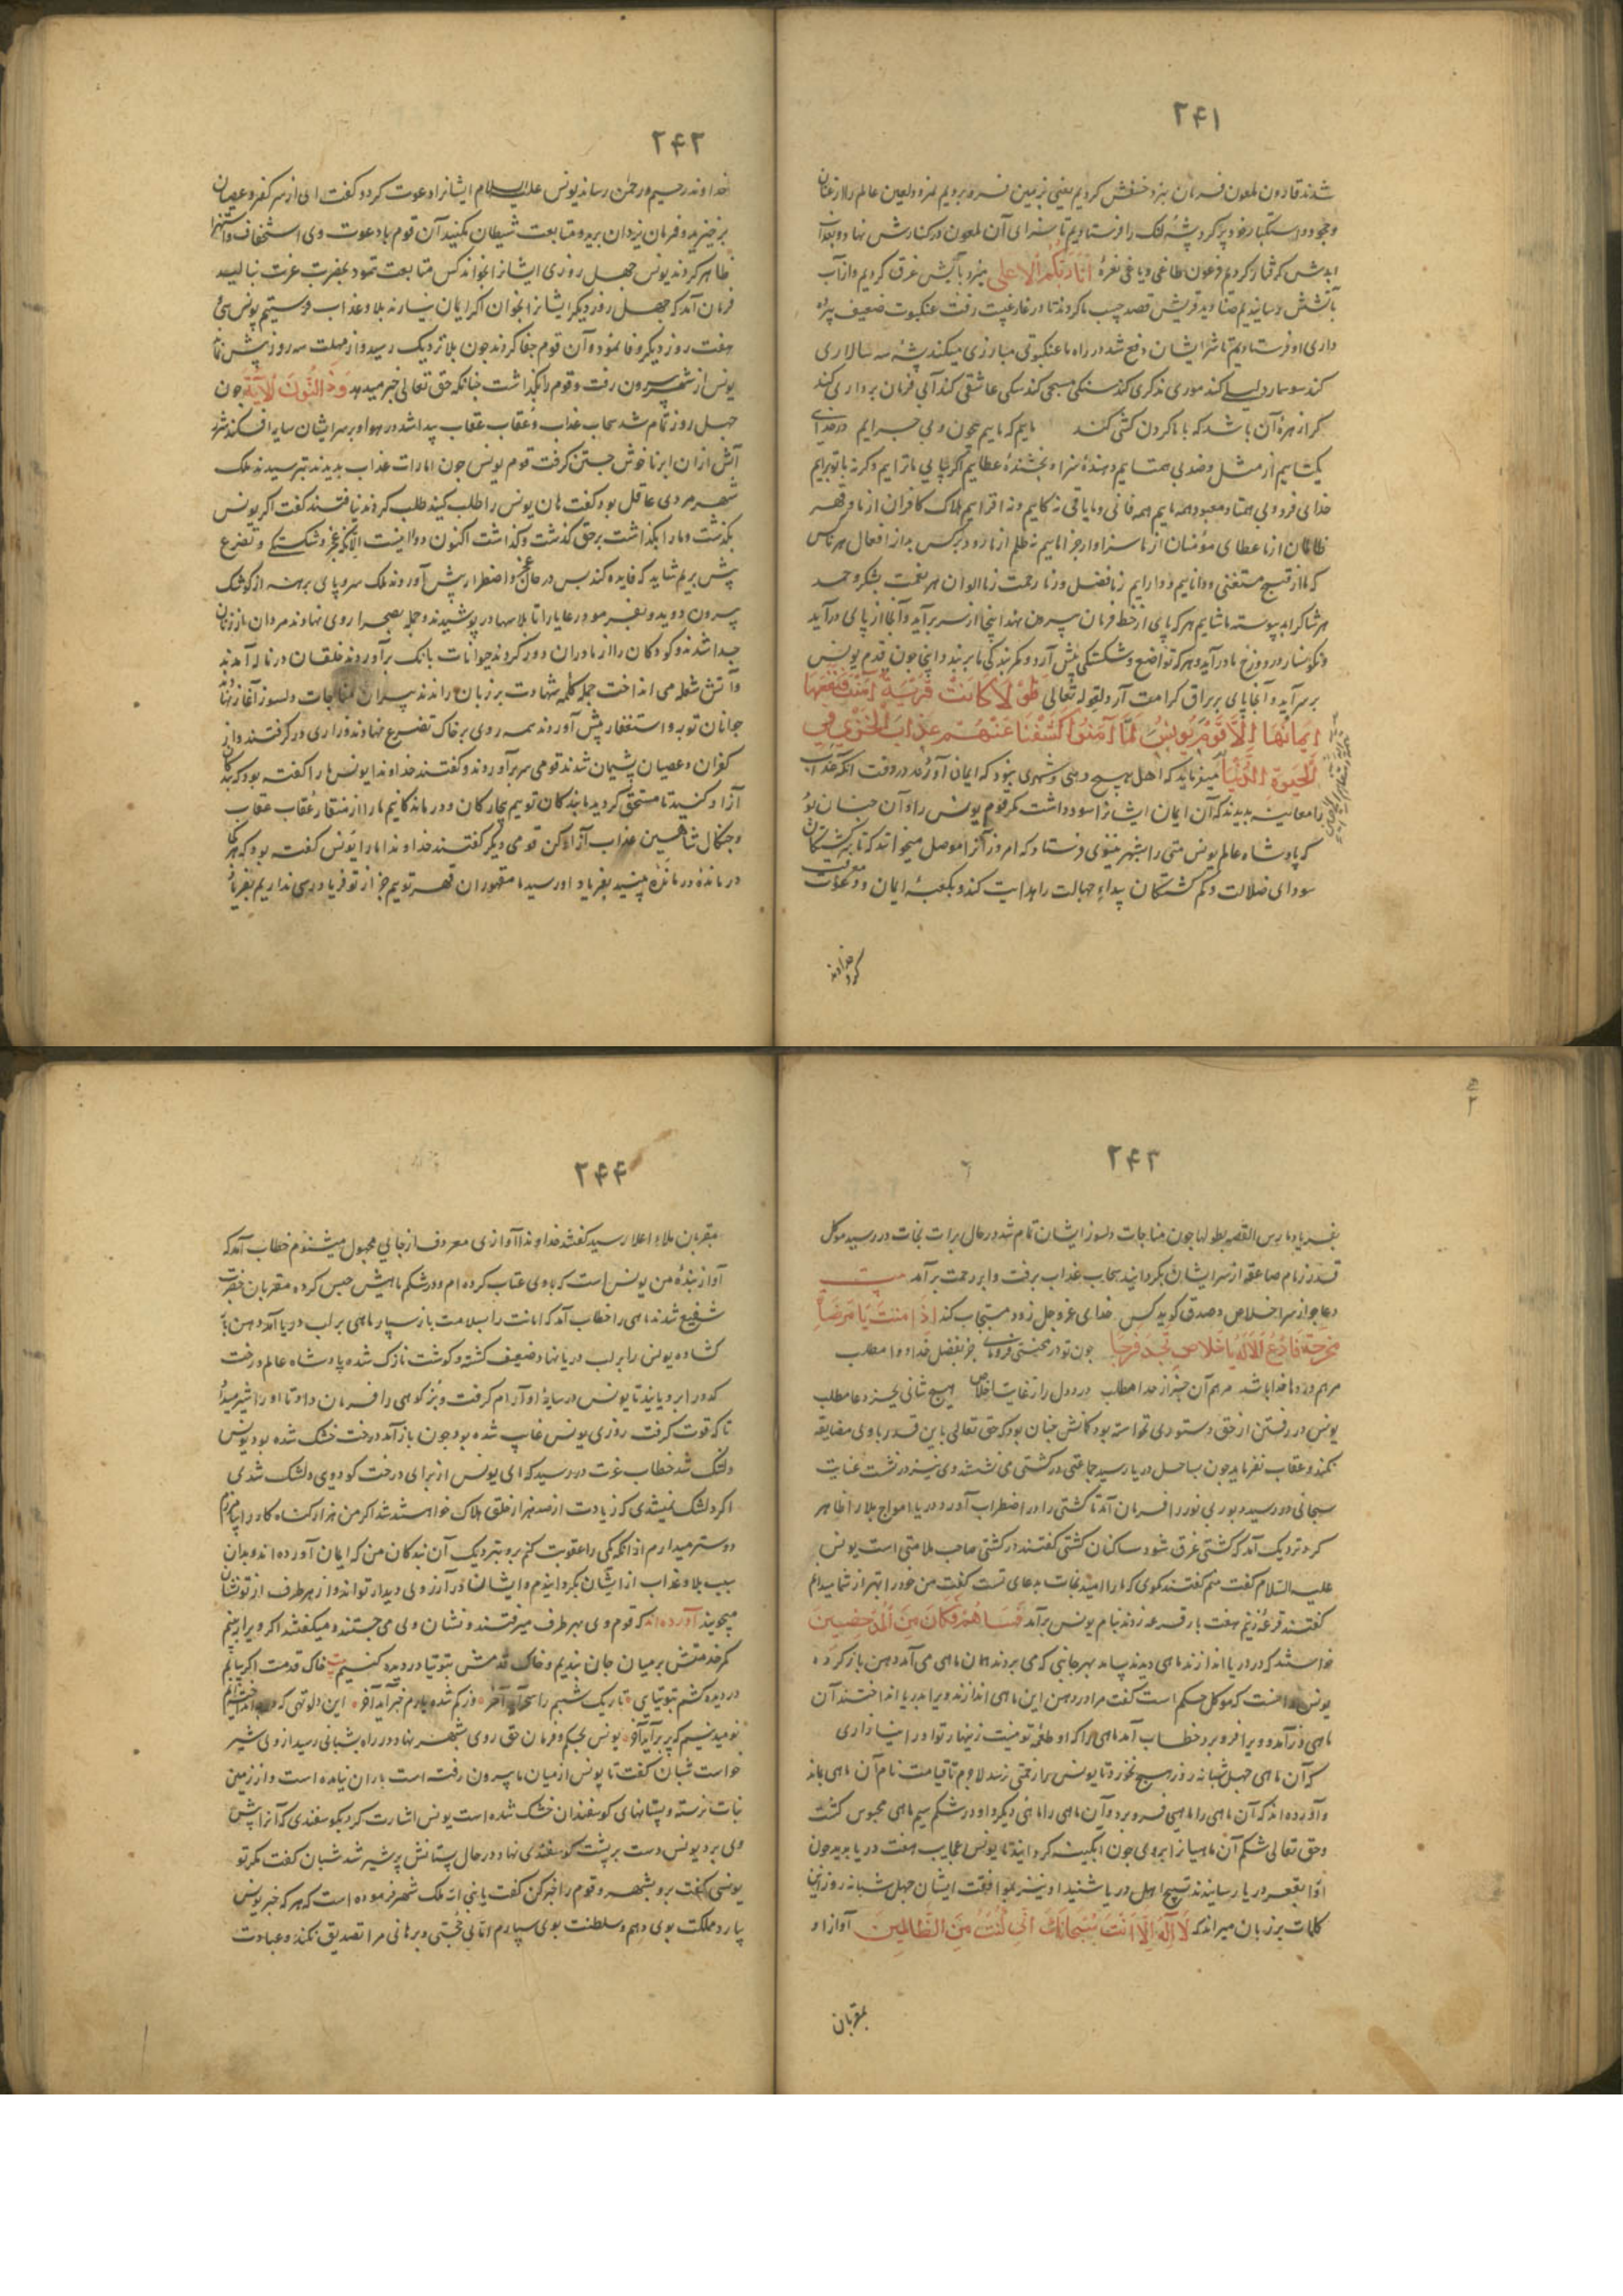 ۲۴۱
شدند قارون ملعون فرمان بزد خسفش کردیم یعنی بزمین فرو بردیم نمرود لعین عالم را از عنان
و جحود و استکبار خود پر کرد پشهٔ لنک را فرستادیم تا سزای آن ملعون در کنارش نهاد و بعذاب
ابدش کرفتار کردیم فرعون طاغی و یاغی نعرهٔ انا ربکم الاعلی میزد بآبش غرق کردیم و از آب
بآتشش رسانیدیم صنادید قریش قصد حبیب ما کردند تا در غار غیبت رفت عنکبوت ضعیف پرده
داری او فرستادیم تا شر ایشان دفع شد در راه ما عنکبوتی مبارزی میکند پشهٔ سه سالاری
کند سوسمار دلیلی کند موری مذکری کند سنکی مسبحی کند سکی عاشقی کند آبی فرمان برداری کند
کرا زهرهٔ آن باشد که با ما کردن کشی کند مایم که مایم بیچون و بی چرایم در خدای
یکتاییم از مثل و ضد بی همتاییم دهندهٔ سزا و بخشندهٔ عطاییم اکر بیایی ما تراییم و کرنه با تو براییم
خدای فرد و بی همتا و معبود همه ماییم همه فانی و ما باقی نه کاییم و نه افزاییم هلاک کافران از ما و قهر
ظالمان از ما عطای مؤمنان از ما سزاوار جزا ماییم نه ظلم از ما رود بر کس بد از افعال هر ناکس
که ما از قبیح مستغنی و داناییم و داراییم ز ما فضل و ز ما رحمت ز ما الوان هر نعمت بشکر و حمد
هر شاکر ابد پیوسته ما شاییم هر که پای از خط فرمان بیرون نهد اینجا از سر برآید و آنجا از پای درآید
و نکونسار در دوزخ ما درآید و هر که تواضع و شکستکی پیش آرد و کمر بندکی ما بر بندد اینجا چون قوم یونس
بر سر آید و آنجا پای بر براق کرامت آرد لقوله تعالی فلولا کانت قریة آمنت فنفعها
ایمانها الا قوم یونس لما آمنوا کشفنا عنهم عذاب الخزی فی
الحیوة الدنیا میفرماید که اهل هیچ دهی و شهری نبود که ایمان آوردند در وقت آنکه عذاب
را معاینه بدیدند که آن ایمان ایشانرا سود داشت مکر قوم یونس را و آن چنان بود
که پادشاه عالم یونس متی را بشهر نینوی فرستاد که امروز آنرا موصل میخوانند که تا سرکشتکان
سودای ضلالت و کم کشتکان بیداء جهالت را هدایت کند و بکعبهٔ ایمان و معرفت دعوت
کرد خداوند
۲۴۲
خداوند رحیم و رحمن رساند یونس علیه السلام ایشانرا دعوت کرد و کفت ای از سر کفر و عصیان
برخیزید و فرمان یزدان برید و متابعت شیطان مکنید آن قوم با دعوت وی استخفاف و استهزا
ظاهر کردند یونس چهل روزی ایشانرا بخواند کس متابعت ننمود بحضرت عزت بنالید
فرمان آمد که چهل روز دیکر ایشانرا بخوان اکر ایمان نیارند بلا و عذاب فرستیم یونس سی
هفت روز دیکر وفا نمود و آن قوم جفا کردند چون بلا نزدیک رسید و از مهلت سه روز پیش نماند
یونس از شهر بیرون رفت و قوم را بکذاشت چنانکه حق تعالی خبر میدهد و ذا النون الآیة چون
چهل روز تمام شد سحاب عذاب و عقاب عقاب پیدا شد در هوا و بر سر ایشان سایه افکند شرر
آتش از آن ابر ناخوش جستن کرفت قوم یونس چون امارات عذاب بدیدند بترسیدند ملک
شهر مردی عاقل بود کفت هان یونس را طلب کنید طلب کردند نیافتند کفت اکر یونس
بکذشت و ما را بکذاشت بر حق کذشت و کذاشت اکنون دوا نیست الا آنکه عجز و شکستکی و تضرع
پیش بریم شاید که فایده کند پس در حال عجز و اضطرار پیش آوردند ملک سر و پای برهنه از کوشک
بیرون دوید و بفرمود رعایا را تا پلاسها در پوشیدند و جمله بصحرا روی نهادند مردان از زنان
جدا شدند و کودکان را از مادران دور کردند حیوانات بانک برآوردند خلقان در ناله آمدند
و آتش شعله می انداخت جمله کلمهٔ شهادت بر زبان راندند پیران مناجات دلسوز آغاز نهادند
جوانان توبه و استغفار پیش آوردند همه روی بر خاک تضرع نهادند و زاری در کرفتند و از
کفران و عصیان پشیمان شدند قومی سر برآوردند و کفتند خداوندا یونس ما را کفته بود که بندکان
آزاد کنید تا مستحق کردید ما بندکان توییم بیچارکان و درماندکانیم ما را از منقار عقاب عقاب
و چنکال شاهین عذاب آزاد کن قومی دیکر کفتند خداوندا ما را یونس کفته بود که هر کجا
درماندهٔ درمانده بینید بفریاد او رسید ما مقهوران قهر توییم جز از تو فریادرسی نداریم بفریاد
۲۴۳
بفریاد ما رس القصه بطولها چون مناجات دلسوز ایشان تمام شد در حال برات نجات در رسید موکل
قدر زمام صاعقه از سر ایشان بکردانید سحاب عذاب برفت و ابر رحمت برآمد بیت
دعا جو از سر اخلاص و صدق کوید کس خدای عز و جل زود مستجاب کند اذا
فادع الاله باخلاص تجد فرجا چون تو در محنتی فرو مانی جز بفضل خدا دوا مطلب
مرهم دردها خدا باشد مرهم آن جز از خدا مطلب درد دل را ز غایت اخلاص هیچ شافی بجز دعا مطلب
یونس در رفتن از حق دستوری نخواسته بود کمانش چنان بود که حق تعالی باین قدر با وی مضایقه
نکند و عقاب نفرماید چون بساحل دریا رسید جماعتی در کشتی می نشستند وی نیز در نشست عنایت
سبحانی در رسید
کرد نزدیک آمد که کشتی غرق شود ساکنان کشتی کفتند در کشتی صاحب ملامتی است یونس
علیه السلام کفت منم کفتند کوی که ما را امید نجات بدعای تست کفت من خود را بهتر از شما میدانم
کفتند قرعه زنیم هفت بار قرعه زدند بنام یونس برآمد فساهم فکان من المدحضین
خواستند که در دریا اندازند ماهی دیدند بیامد بهر جانبی که می بردند همان ماهی می آمد دهن باز کرده
یونس دانست که موکل حکم است کفت مرا در دهن این ماهی اندازند ویرا بدریا انداختند آن
ماهی درآمد و ویرا فرو برد خطاب آمد ماهی را که او طعمهٔ تو نیست زینهار تو او را نیازاری
که آن ماهی چهل شبانه روز هیچ نخورد تا یونس را زحمتی نرسد لاجرم تا قیامت نام آن ماهی بماند
و آورده اند که آن ماهی را ماهیی فرو برد و آن ماهی را ماهی دیکر و او در شکم سیم ماهی محبوس کشت
و حق تعالی شکم آن ماهیانرا بر وی چون آبکینه کردانید تا یونس عجایب هفت دریا بدید چون
او را بقعر دریا رسانیدند تسبیح اهل دریا شنید او نیز بموافقت ایشان چهل شبانه روز این
کلمات بر زبان میراند که لا اله الا انت سبحانک انی کنت من الظالمین آواز او
بمقربان
۲۴۴
بمقربان ملاء اعلا رسید کفتند خداوندا آوازی معروف از جایی مجهول میشنویم خطاب آمد که
آواز بندهٔ من یونس است که با وی عتاب کرده ام و در شکم ماهیش حبس کرده مقربان حضرت
شفیع شدند ماهی را خطاب آمد که امانت را بسلامت باز سپار ماهی بر لب دریا آمد دهن باز
کشاده یونس را بر لب دریا نهاد ضعیف کشته و کوشت نازک شده پادشاه عالم درخت
کدو را برویانید تا یونس در سایهٔ او آرام کرفت و بز کوهی را فرمان داد تا او را شیر میداد
تا که قوت کرفت روزی یونس غایب شده بود چون باز آمد درخت خشک شده بود یونس
دلتنک شد خطاب عزت در رسید که ای یونس از برای درخت کدویی دلتنک شدی
اکر دلتنک نمیشدی که زیادت از صد هزار خلق هلاک خواستند شد اکر من هزار کناه کار را بیامرزم
دوستر میدارم از آنکه یکی را عقوبت کنم برو بنزدیک آن بندکان من که ایمان آورده اند و بدان
سبب بلا و عذاب از ایشان بکردانیدم و ایشان در آرزوی دیدار تواند و از هر طرف از تو نشان
میجویند آورده اند که قوم وی بهر طرف میرفتند و نشان وی می جستند و میکفتند اکر ویرا بازیابیم
کمر خدمتش بر میان جان بندیم و خاک قدمش بتوتیا در دیده کنیم بیت خاک قدمت اکر بیابم
در دیده کشم بتوتیای تاریک شبم را سحر آید آخر وز کم شده یارم خبر آید آخر این دلو تهی که در چاه انداخته‌ایم
نومید نیم که پر برآید آخر یونس بحکم و فرمان حق روی بشهر نهاد در راه بشبانی رسید از وی شیر
خواست شبان کفت تا یونس از میان ما بیرون رفته است باران نیامده است و از زمین
نبات نرسته و پستانهای کوسفندان خشک شده است یونس اشارت کرد بکوسفندی که آنرا پیش
وی برد یونس دست بر پشت کوسفندی نهاد در حال پستانش پر شیر شد شبان کفت مکر تو
یونسی کفت برو بشهر و قوم را خبر کن کفت یا نبی الله ملک شهر فرموده است که هر که خبر یونس
بیارد مملکت بوی دهم و سلطنت بوی سپارم اما بی حجتی و برهانی مرا تصدیق نکنند و عبادت